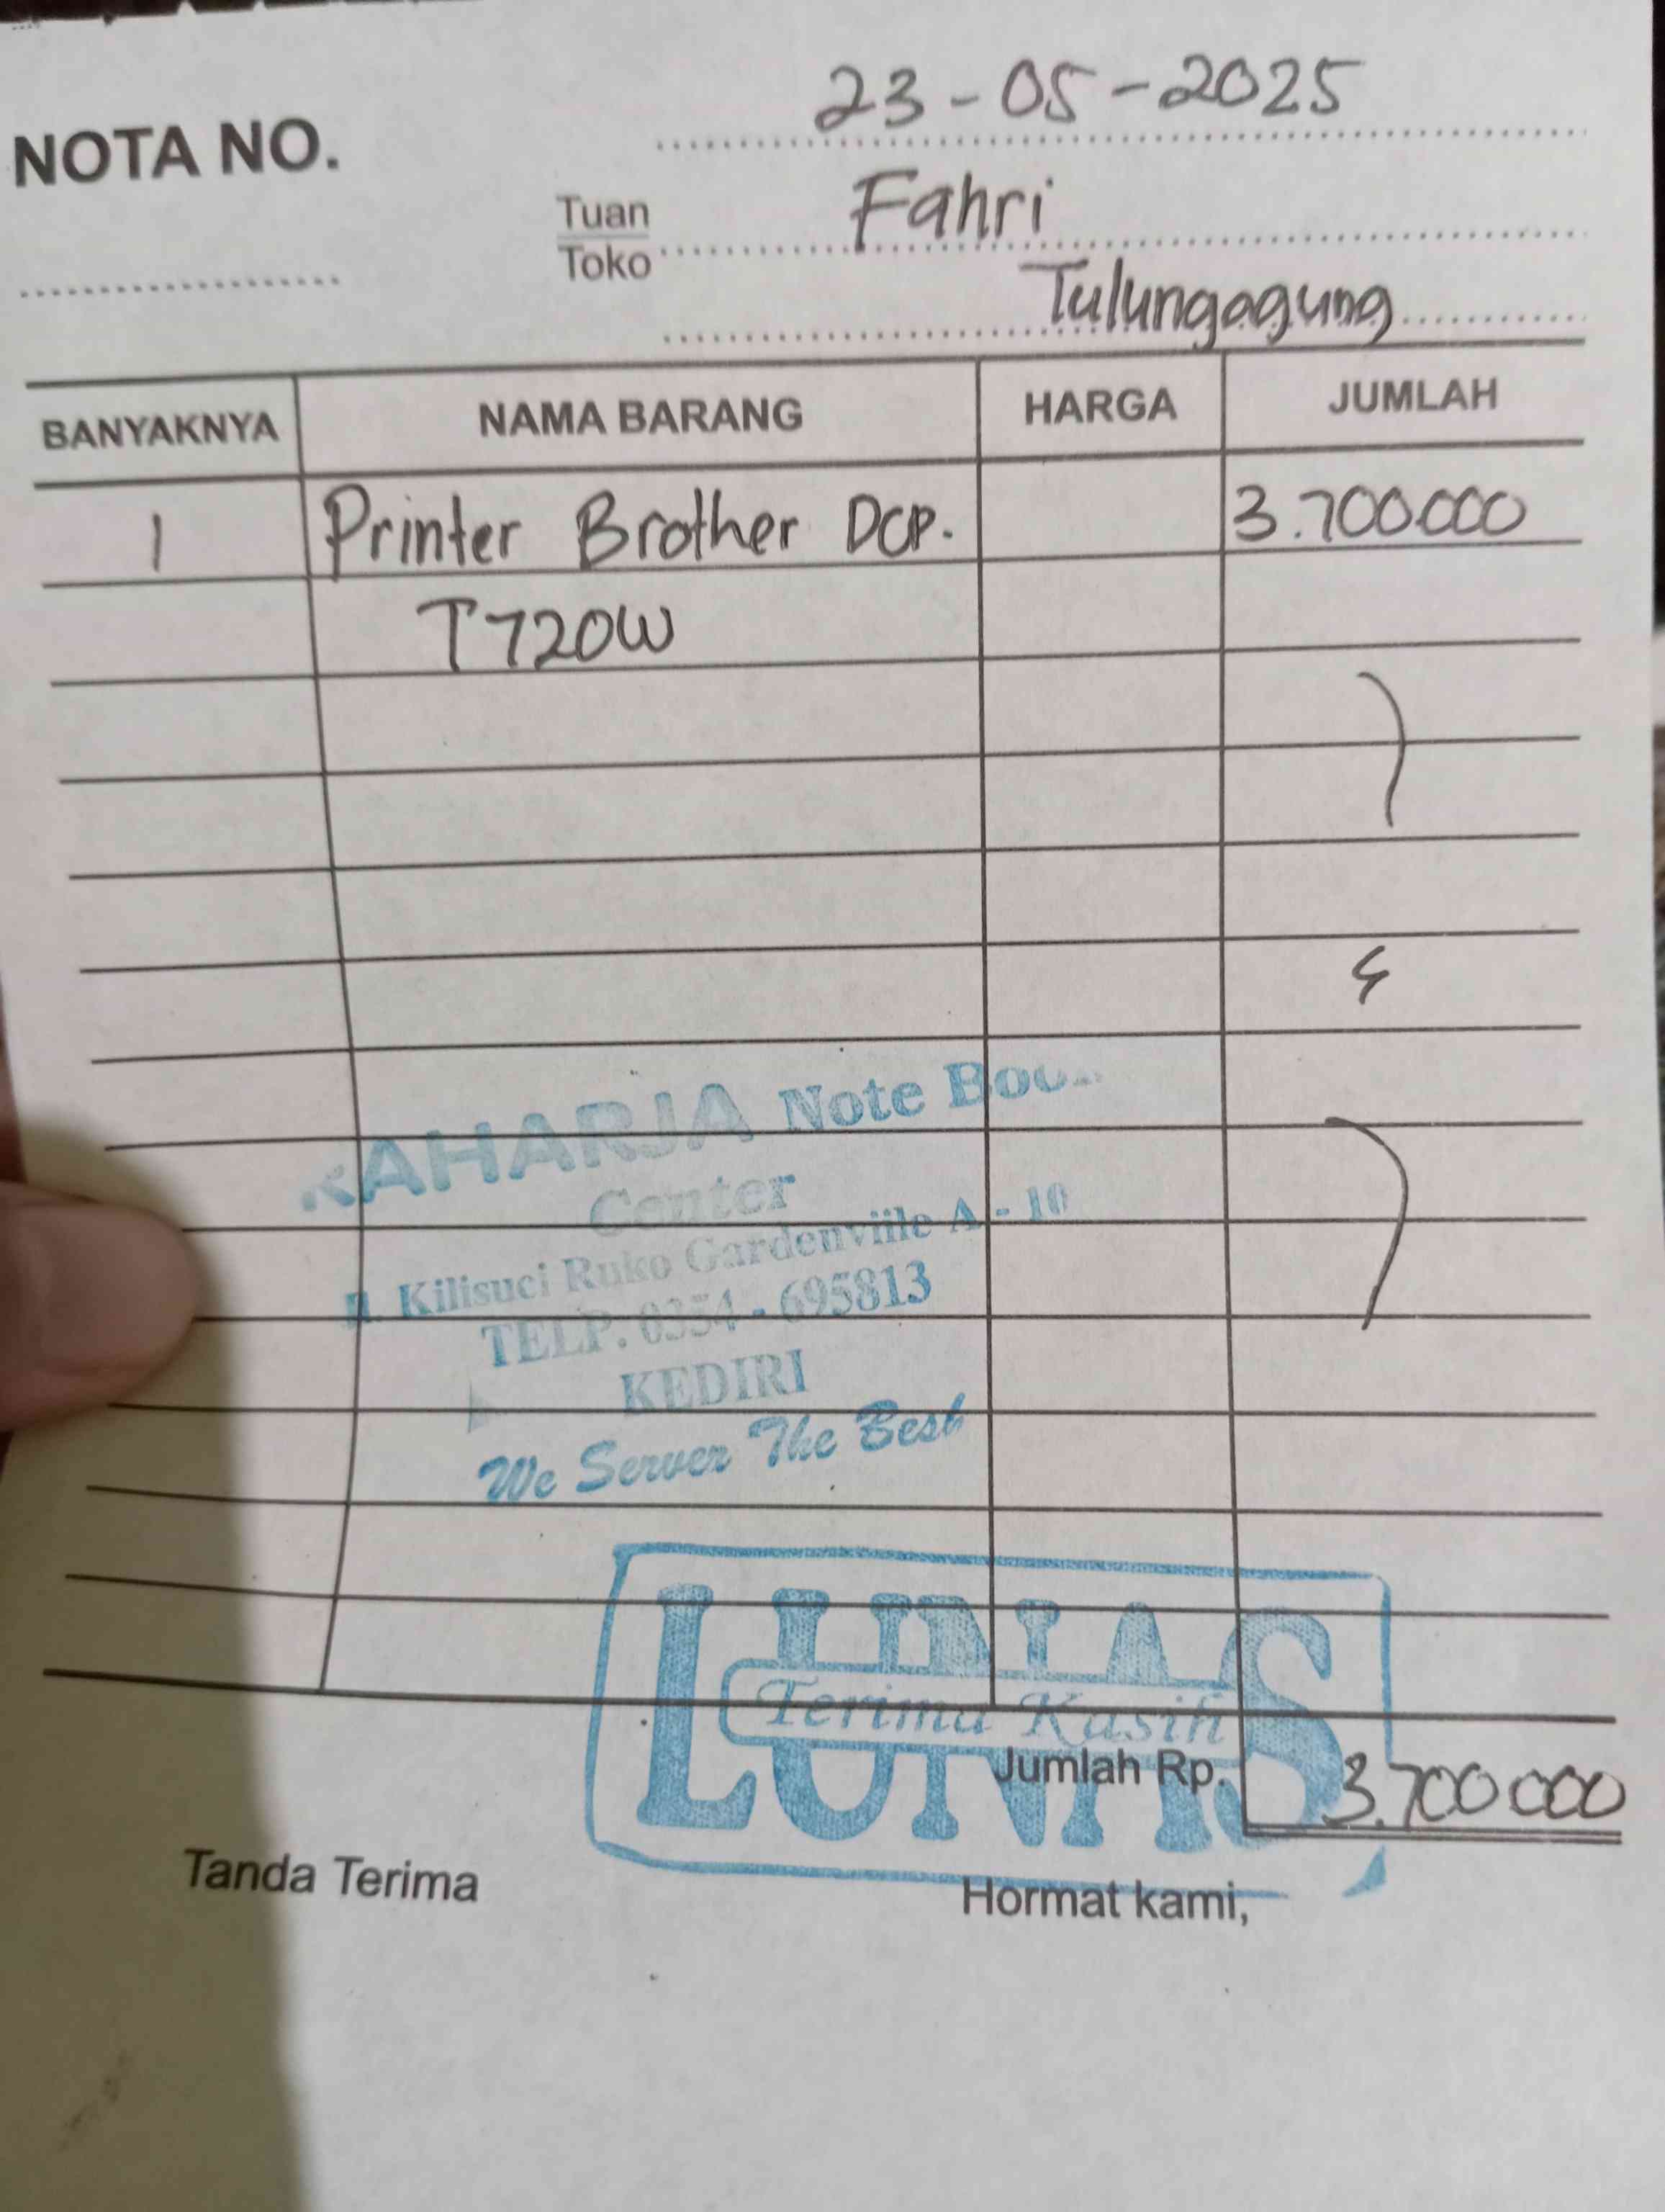 23-05-2025
NOTA NO.
Tuan
Toko
Fahri
Tulungagung
BANYAKNYA NAMA BARANG HARGA JUMLAH
1 Printer Brother DCP. 3.700.000
T720W
RAHARJA Note Book
Center
Jl. Kilisuci Ruko Gardenviile A - 10
TELP. 0354 - 695813
KEDIRI
We Server The Best
LUNAS
Terima Kasih
Jumlah Rp. 3.700 000
Tanda Terima Hormat kami,